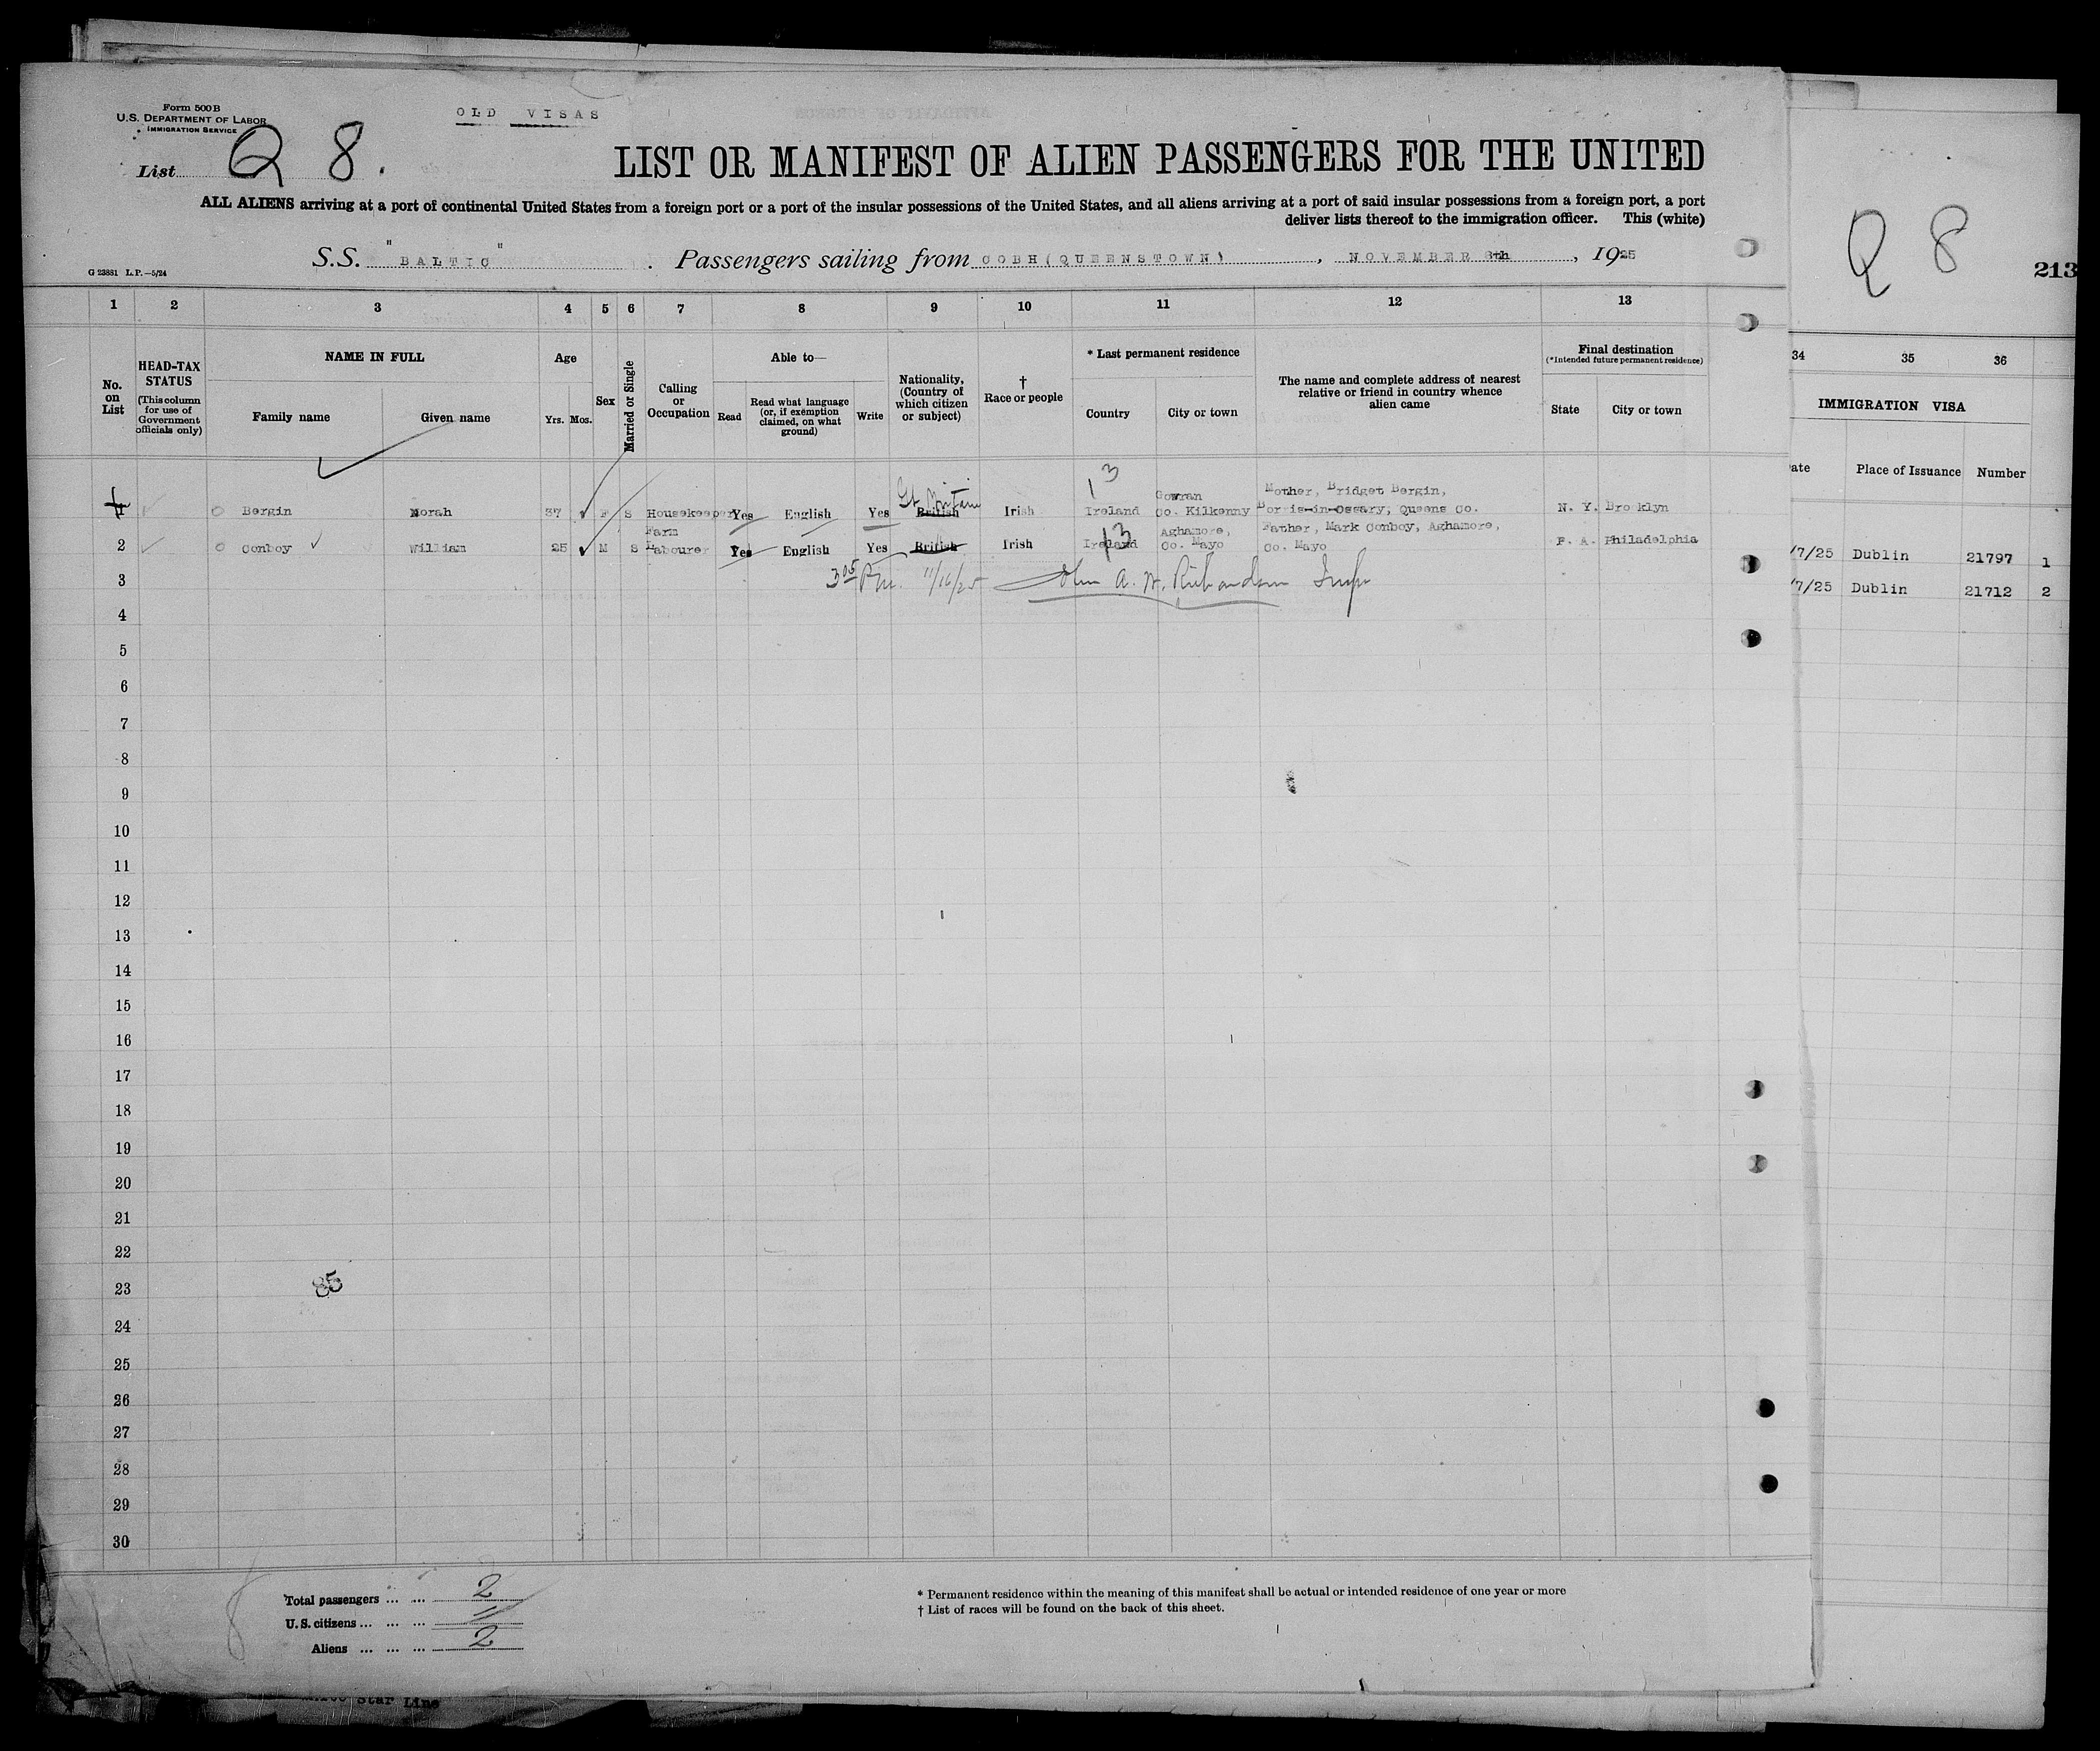 Form 500 B
U.S. DEPARTMENT OF LABOR
IMMIGRATION SERVICE
OLD VISAS
List Q 8.
LIST OR MANIFEST OF ALIEN PASSENGERS FOR THE UNITED
ALL ALIENS arriving at a port of continental United States from a foreign port or a port of the insular possessions of the United States, and all aliens arriving at a port of said insular possessions from a foreign port, a port
deliver lists thereof to the immigration officer. This (white)
G 23881 L.P.—5/24
S.S. "BALTIC". Passengers sailing from COBH (QUEENSTOWN), NOVEMBER 8th, 1925
Q 8
213
1 2 3 4 5 6 7 8 9 10 11 12 13
34 35 36
No. on List
HEAD-TAX STATUS
(This column for use of Government officials only)
NAME IN FULL
Family name Given name
Age
Yrs. Mos.
Sex
Married or Single
Calling or Occupation
Able to—
Read
Read what language (or, if exemption claimed, on what ground)
Write
Nationality, (Country of which citizen or subject)
† Race or people
* Last permanent residence
Country City or town
The name and complete address of nearest relative or friend in country whence alien came
Final destination
(*Intended future permanent residence)
State City or town
IMMIGRATION VISA
ate Place of Issuance Number
Gt. Britain
13
1 Bergin Norah 37 F S Housekeeper Yes English Yes British Irish Ireland Gowran Co. Kilkenny Mother, Bridget Bergin, Borris-in-Ossary, Queens Co. N. Y. Brooklyn
13
2 Conboy William 25 M S Farm Labourer Yes English Yes British Irish Ireland Aghamore, Co. Mayo Father, Mark Conboy, Aghamore, Co. Mayo P. A. Philadelphia
/7/25 Dublin 21797 1
/7/25 Dublin 21712 2
3 3 05 Pm. 11/16/25 John A. W. Richardson Insp
4
5
6
7
8
9
10
11
12
13
14
15
16
17
18
19
20
21
22
23
85
24
25
26
27
28
29
30
Total passengers ... ... 2
U.S. citizens ... ... ...
Aliens ... ... ... 2
* Permanent residence within the meaning of this manifest shall be actual or intended residence of one year or more
† List of races will be found on the back of this sheet.
Star Line